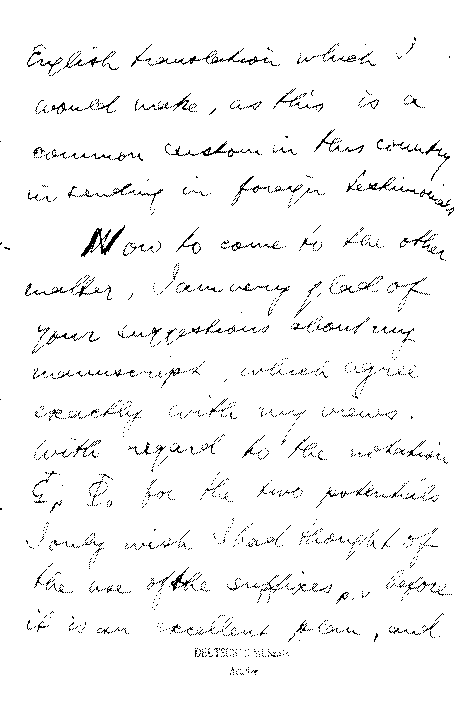 English translation which I
would make, as this is a
common custom in this country
in sending in foreign testimonials
Now to come to the other
matter, I am very glad of
your suggestions about my
manuscript, which agree
exactly with my views.
With regard to the notation
for the two potentials
I only wish I had thought of
the use of the suffixes p, v before
it is an excellent plan, and
DEUTSCHES MUSEUM
Archiv